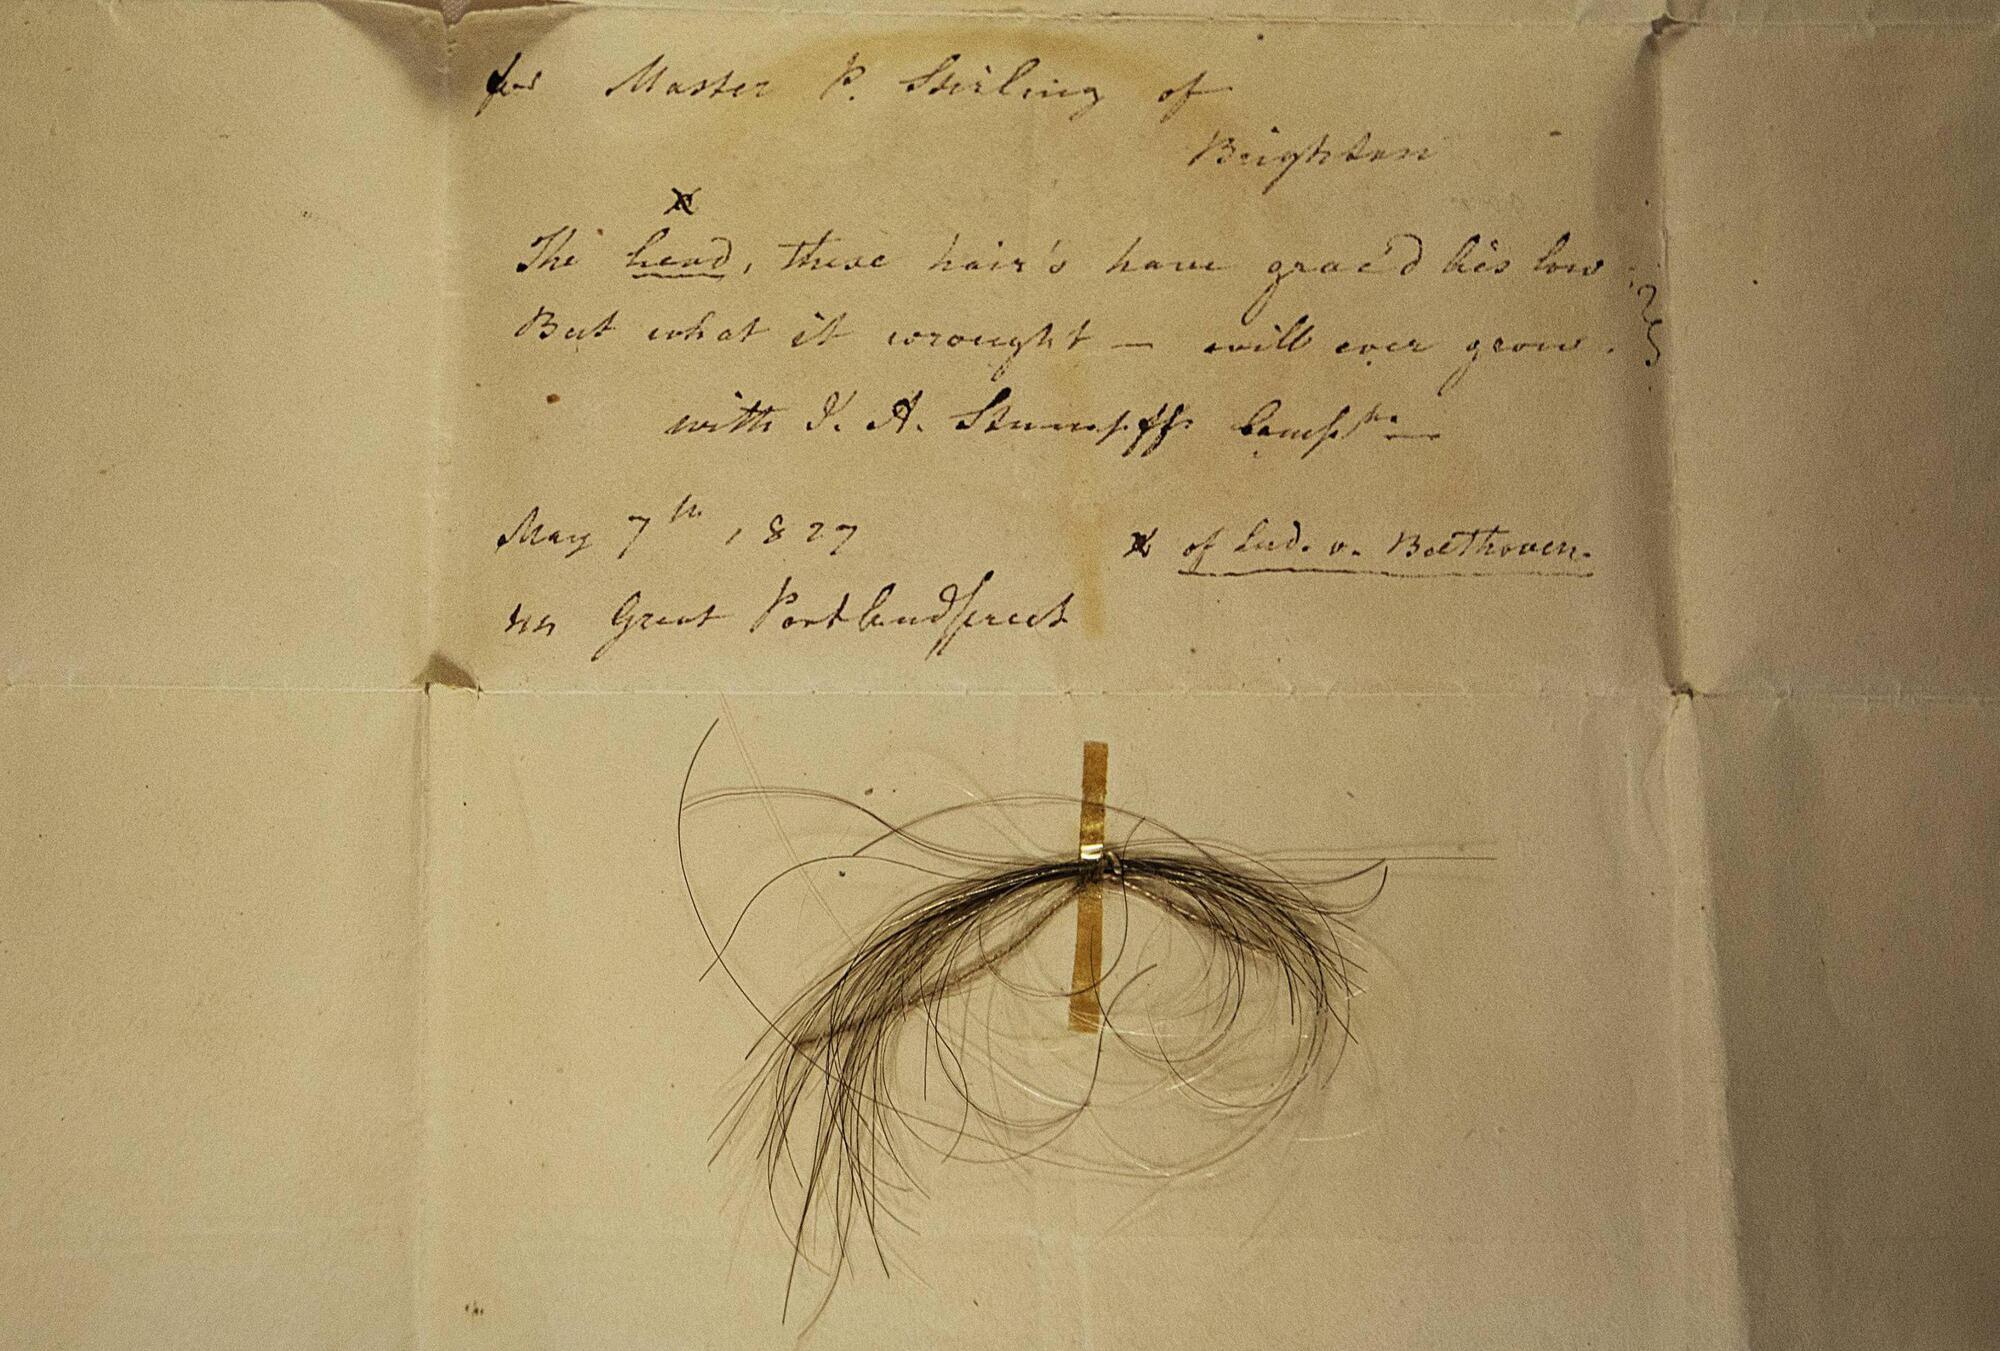 for Master P. Stirling of
Brighton
x
The head, these hair's have grac'd lies low
But what it wrought — will ever grow.
with J. A. Stumpff's
May 7th, 1827
x of Lud. v. Beethoven.
44 Great Portlandstreet